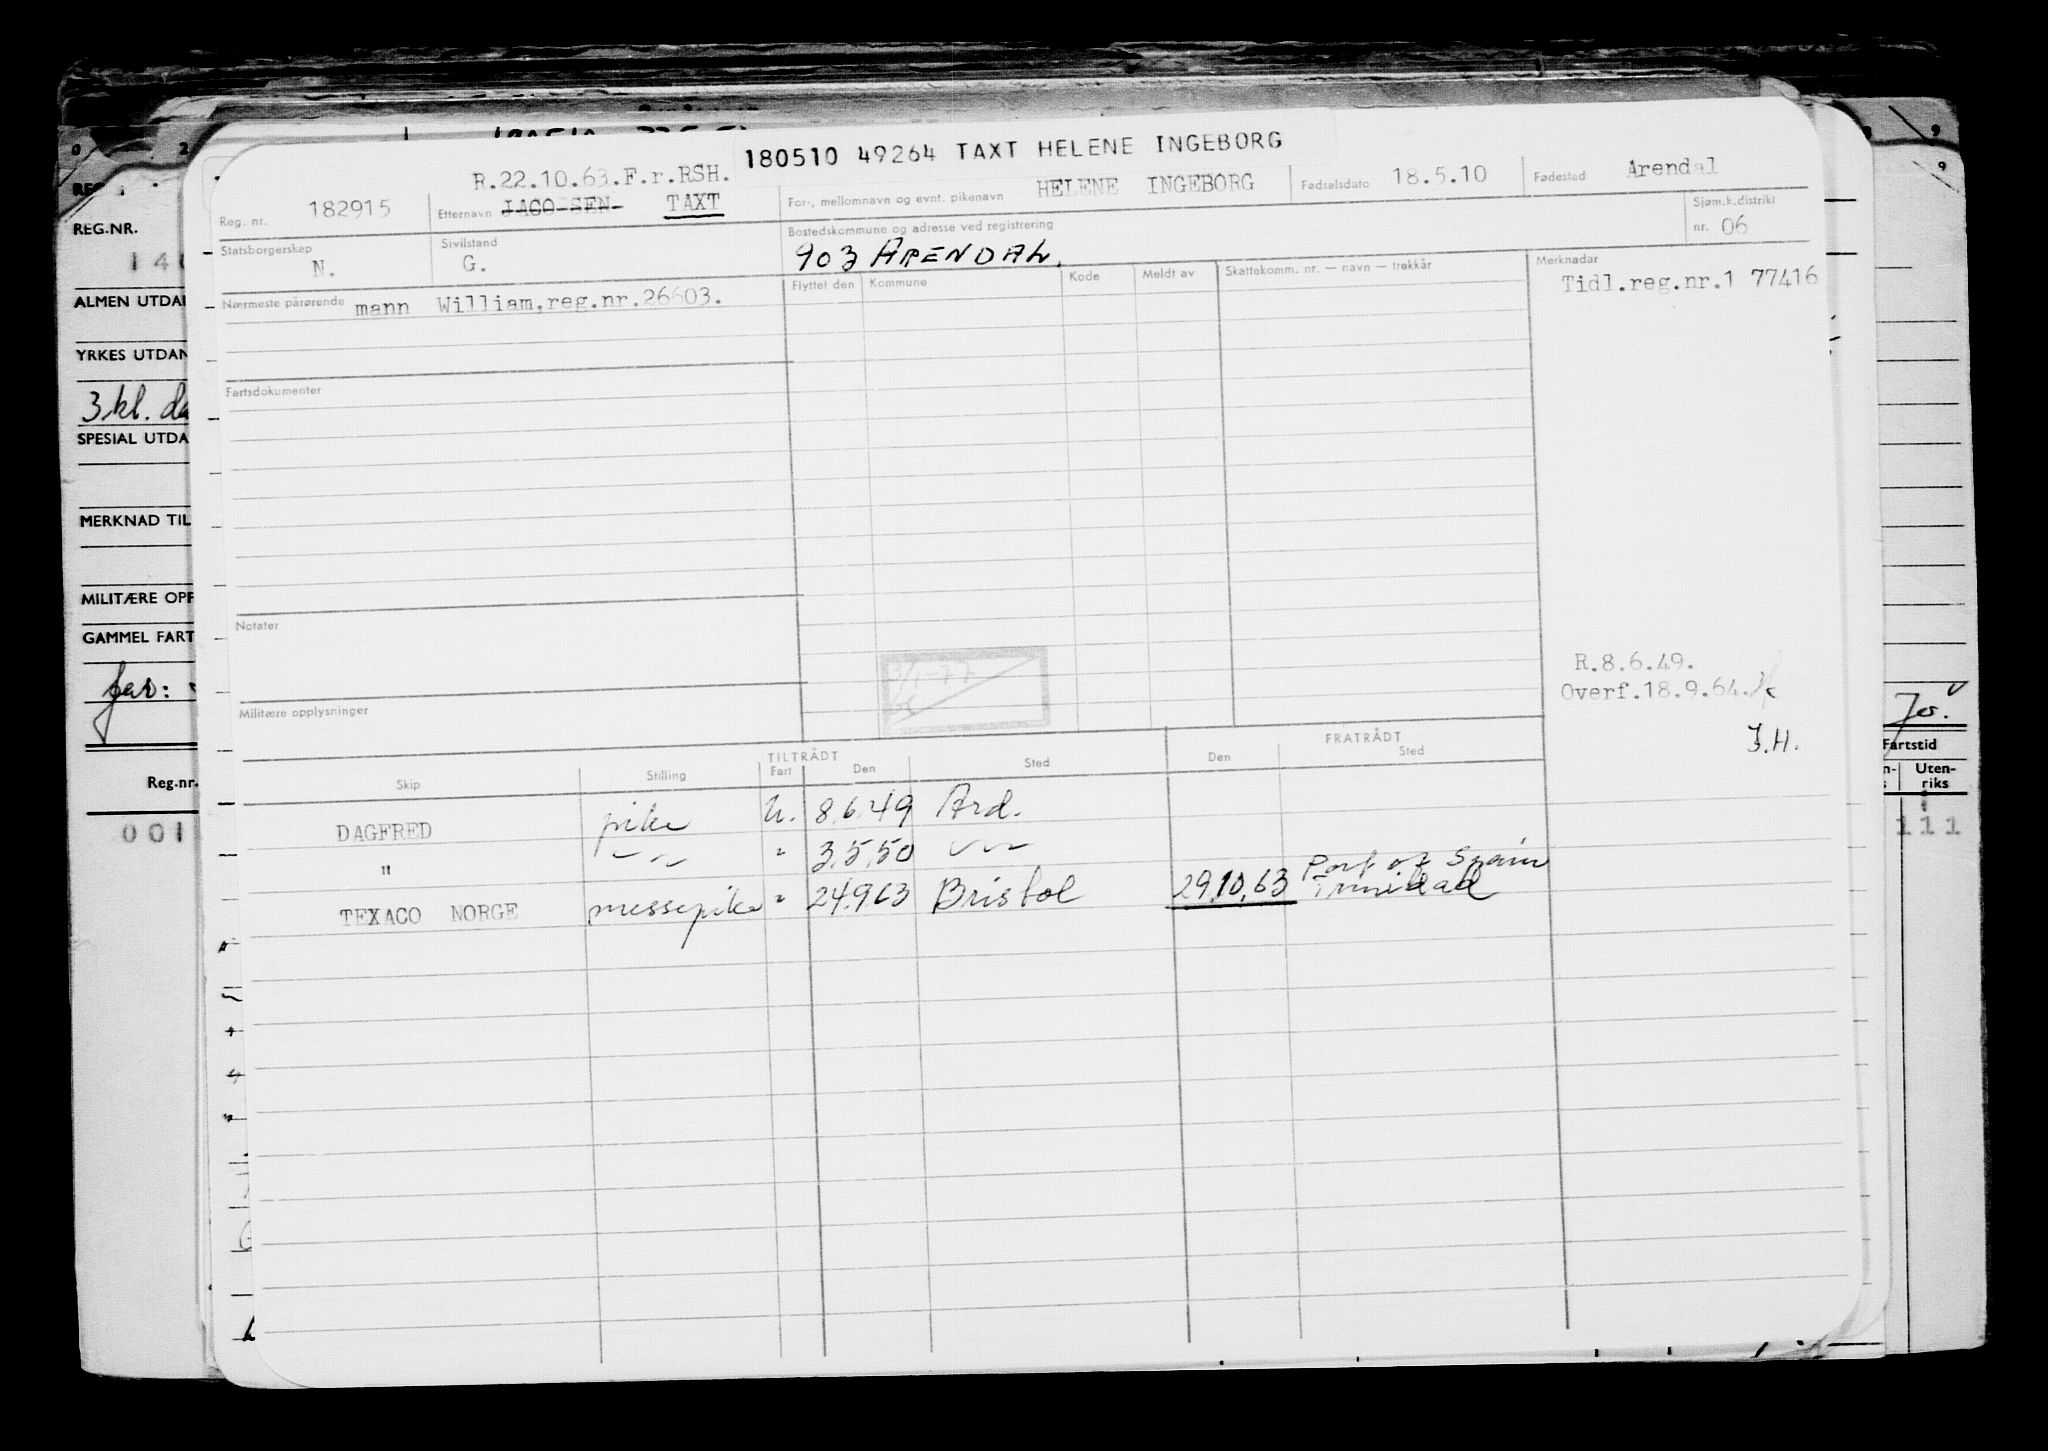 180510 49264 TAXT HELENE INGEBORG
R.22.10.63.F.r.RSH.
Reg. nr. 182915 Etternavn JACOBSEN TAXT For-, mellomnavn og evnt. pikenavn HELENE INGEBORG Fødselsdato 18.5.10 Fødested Arendal
Statsborgerskap N. Sivilstand G. Bostedskommune og adresse ved registrering 903 ARENDAL. Sjøm.k.distrikt nr. 06
Nærmeste pårørende mann William, reg.nr.26603. Flyttet den Kommune Kode Meldt av Skattekomm. nr. — navn — trekkår Merknadar
Tidl.reg.nr.1 77416
Fartsdokumenter
Notater
3/1-77
R.8.6.49.
Overf.18.9.64.
Militære opplysninger
J.H.
TILTRÅDT FRATRÅDT
Skip Stilling Fart Den Sted Den Sted
DAGFRED pike U. 8.6.49 Ard.
" — " — " 3.5.50 — " —
TEXACO NORGE messepike " 24.9.63 Bristol 29.10.63 Port of Spain Trinidad
REG.NR.
140
ALMEN UTDA
YRKES UTDAN
3 kl. da
SPESIAL UTDA
MERKNAD TIL
MILITÆRE OPP
GAMMEL FART
far:
Reg.nr.
001
9
9
Jo.
Fartstid
Uten-
riks
111